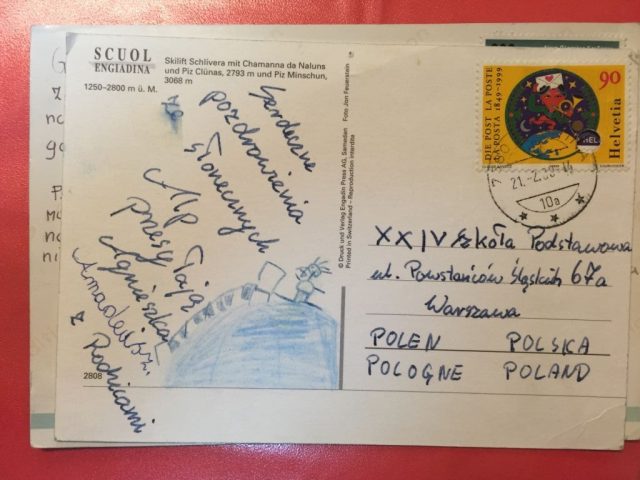 SCUOL
ENGIADINA
Skilift Schlivera mit Chamanna da Naluns
und Piz Clünas, 2793 m und Piz Minschun,
3068 m
1250–2800 m ü. M.
Serdeczne
pozdrowienia
ze słonecznych
Alp
przesyłają
Agnieszka
z Rodzicami
2808
© Druck und Verlag Engadin Press AG, Samedan Foto Jon Feuerstein
Printed in Switzerland – Reproduction interdite
DIE POST LA POSTE
LA POSTA 1849–1999
90
Helvetia
10a
XXIV Szkoła Podstawowa
ul. Powstańców Śląskich 67a
Warszawa
POLEN POLSKA
POLOGNE POLAND